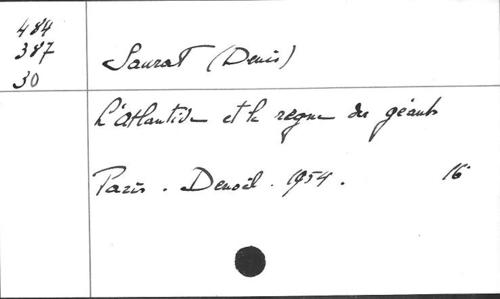 484
387
30
Saurat (Denis)
L'Atlantide et le règne des géants
Paris. Denoël. 1954. 16°